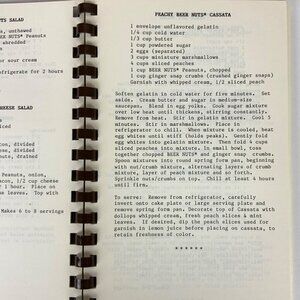 TS SALAD
, unthawed
shredded
ER NUTS® Peanuts
or sour cream
efrigerate for 2 hours
EESE SALAD
otton, divided
ents, divided
nuts, drained
Peanuts, onion,
acon, 1/2 cup cheese
Place on
leaves. Top with
Makes 6 to 8 servings
PEACHY BEER NUTS® CASSATA
1 envelope unflavored gelatin
1/4 cup cold water
1/3 cup butter
1 cup powdered sugar
2 eggs (separated)
3 cups miniature marshmallows
4 cups sliced peaches
1 cup BEER NUTS® Peanuts, chopped
1 cup ginger snap crumbs (crushed ginger snaps)
Garnish with whipped cream, 1/2 sliced peach
Soften gelatin in cold water for five minutes. Set
aside. Cream butter and sugar in medium-size
saucepan. Blend in egg yolks. Cook sugar mixture
over low heat or until thickened, stirring constantly.
Remove from heat. Stir in gelatin mixture. Cool 5
minutes. Stir in marshmallows. Place in
refrigerator to chill. When mixture is cooled, beat
egg whites until stiff (holds peaks). Gently fold
egg whites into gelatin mixture. Then fold 4 cups of
sliced peaches into mixture. In small bowl, toss
together chopped BEER NUTS® and ginger snap crumbs.
Spoon mixtures into round spring form pan, beginning
with nut/crumb mixture, alternating layers of crumb
mixture, layer of peach mixture and so forth.
Sprinkle nuts/crumbs on top. Chill at least 4 hours
until firm.
To serve: Remove from refrigerator, carefully
invert onto cake plate or large serving plate and
remove spring form pan. Decorate top of Cassata with
dollops whipped cream, fresh peach slices & mint
leaves. If desired, dip the peach slices used for
garnish in lemon juice before placing on cassata, to
retain freshness of color.
* * * * * *